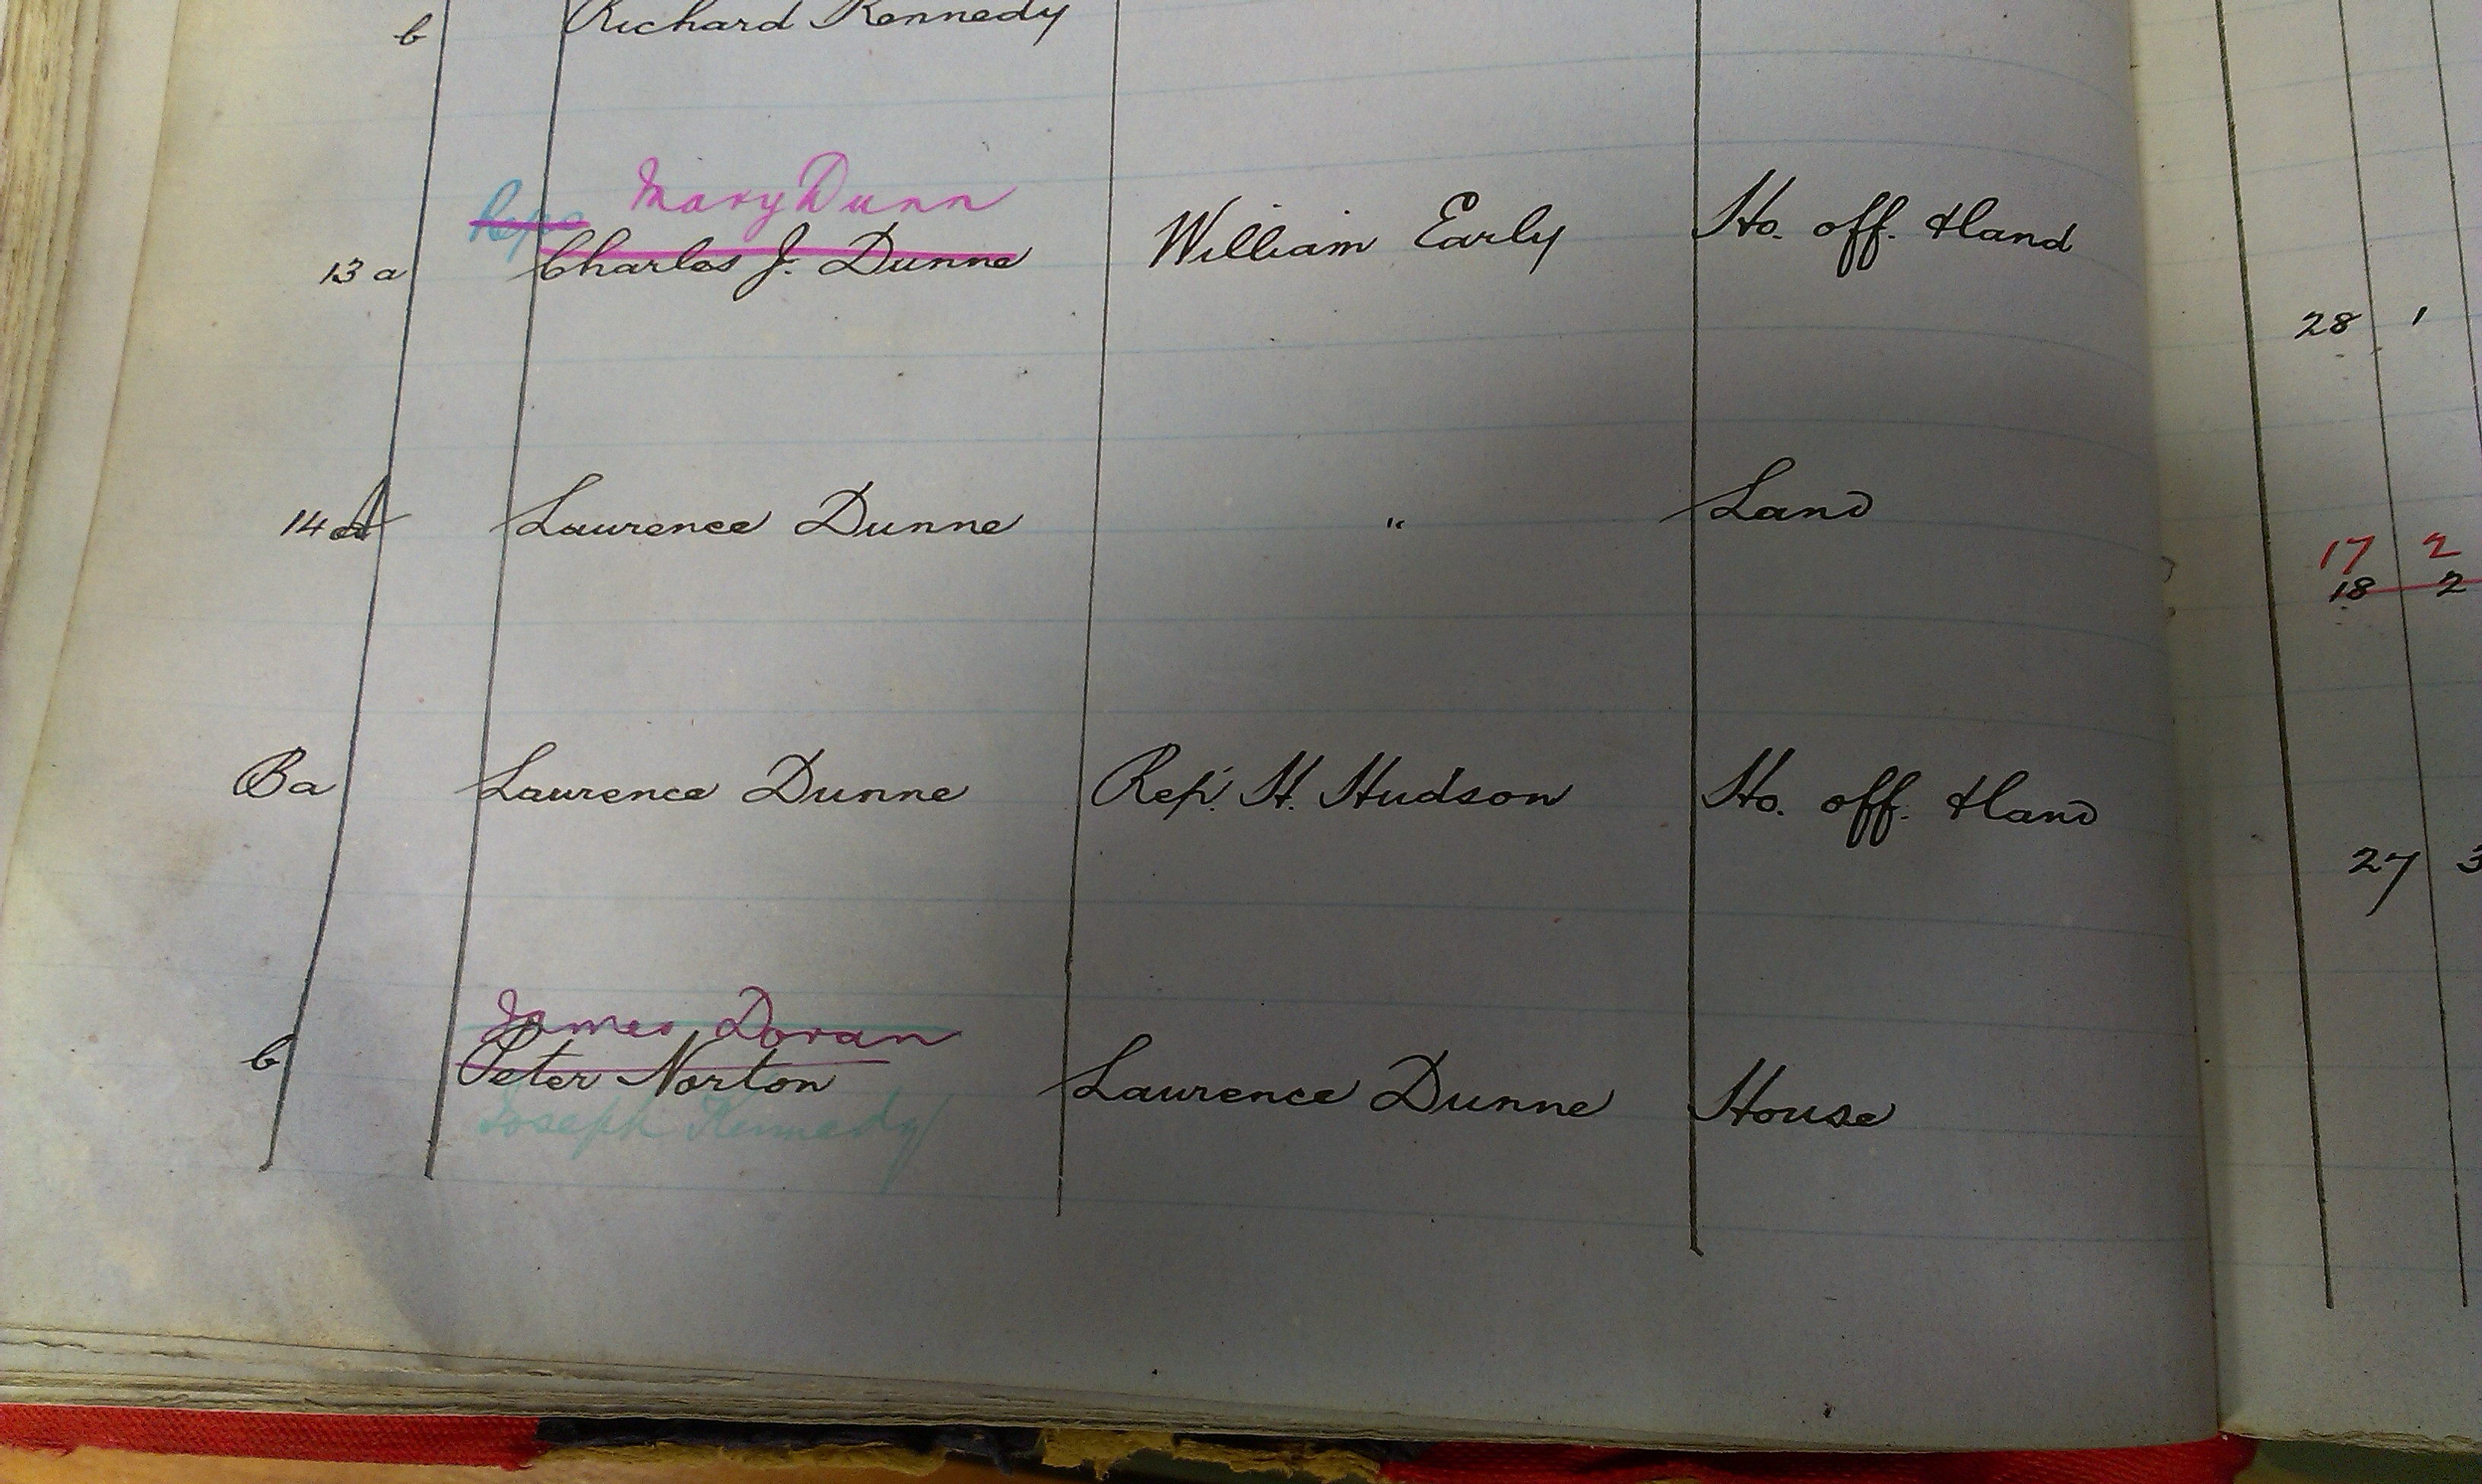 b Richard Kennedy
Reps Mary Dunn
13 a Charles J. Dunne William Early Ho. off. & land
28 1
14 Laurence Dunne " Land
17 2
18 2
Ba Laurence Dunne Rep. H. Hudson Ho. off. & land
27 3
James Doran
b Peter Norton Laurence Dunne House
Joseph Kennedy